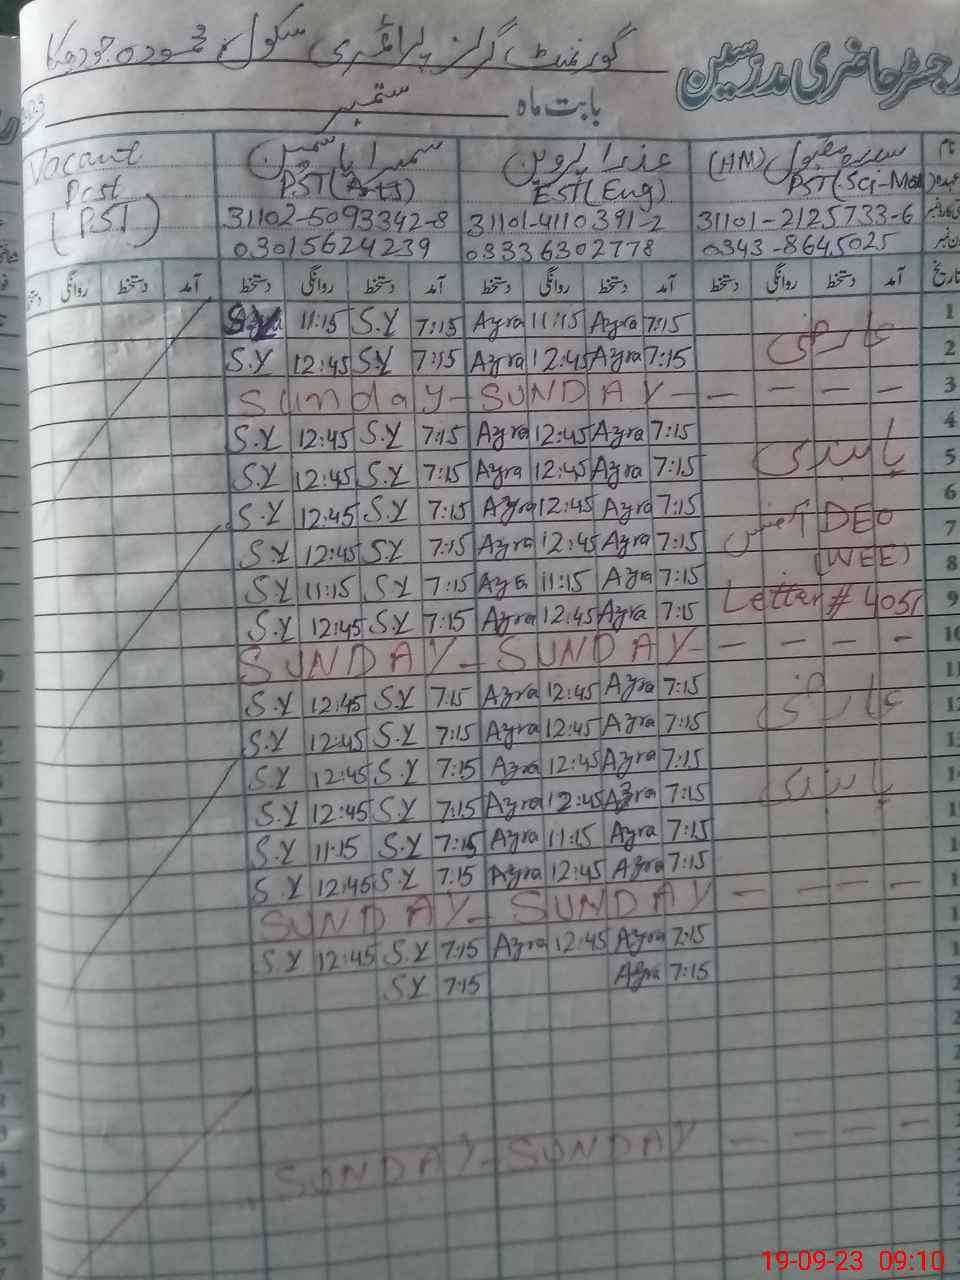 رجسٹر حاضری مدرسین گورنمنٹ گرلز پرائمری سکول
بابت ماہ ستمبر
نام (HM) عذرا پروین سمیرا یاسمین Vacant
PST(Sci-Mat) EST(Eng) PST(Arts) Post
31101-2125733-6 31101-4110391-2 31102-5093342-8 (PST)
0343-8645025 03336302778 03015624239
تاریخ آمد دستخط روانگی دستخط آمد دستخط روانگی دستخط آمد دستخط روانگی دستخط آمد دستخط روانگی
1 عارضی 7:15 Azra 11:15 Azra 7:15 S.Y 11:15
2 7:15 Azra 12:45 Azra 7:15 S.Y 12:45 S.Y
3 Sunday - SUNDAY - - - - -
4 7:15 Azra 12:45 Azra 7:15 S.Y 12:45 S.Y
5 پابندی 7:15 Azra 12:45 Azra 7:15 S.Y 12:45 S.Y
6 7:15 Azra 12:45 Azra 7:15 S.Y 12:45 S.Y
7 DEO آفس 7:15 Azra 12:45 Azra 7:15 S.Y 12:45 S.Y
8 (WEE) 7:15 Azra 11:15 Azra 7:15 S.Y 11:15 S.Y
9 Letter # 4051 7:15 Azra 12:45 Azra 7:15 S.Y 12:45 S.Y
10 SUNDAY - SUNDAY - - - - -
11 7:15 Azra 12:45 Azra 7:15 S.Y 12:45 S.Y
12 عارضی 7:15 Azra 12:45 Azra 7:15 S.Y 12:45 S.Y
7:15 Azra 12:45 Azra 7:15 S.Y 12:45 S.Y
پابندی 7:15 Azra 12:45 Azra 7:15 S.Y 12:45 S.Y
7:15 Azra 11:15 Azra 7:15 S.Y 11:15 S.Y
7:15 Azra 12:45 Azra 7:15 S.Y 12:45 S.Y
SUNDAY - SUNDAY - - - -
7:15 Azra 12:45 Azra 7:15 S.Y 12:45 S.Y
7:15 Azra 7:15 SY
SUNDAY - SUNDAY - - - -
19-09-23 09:10